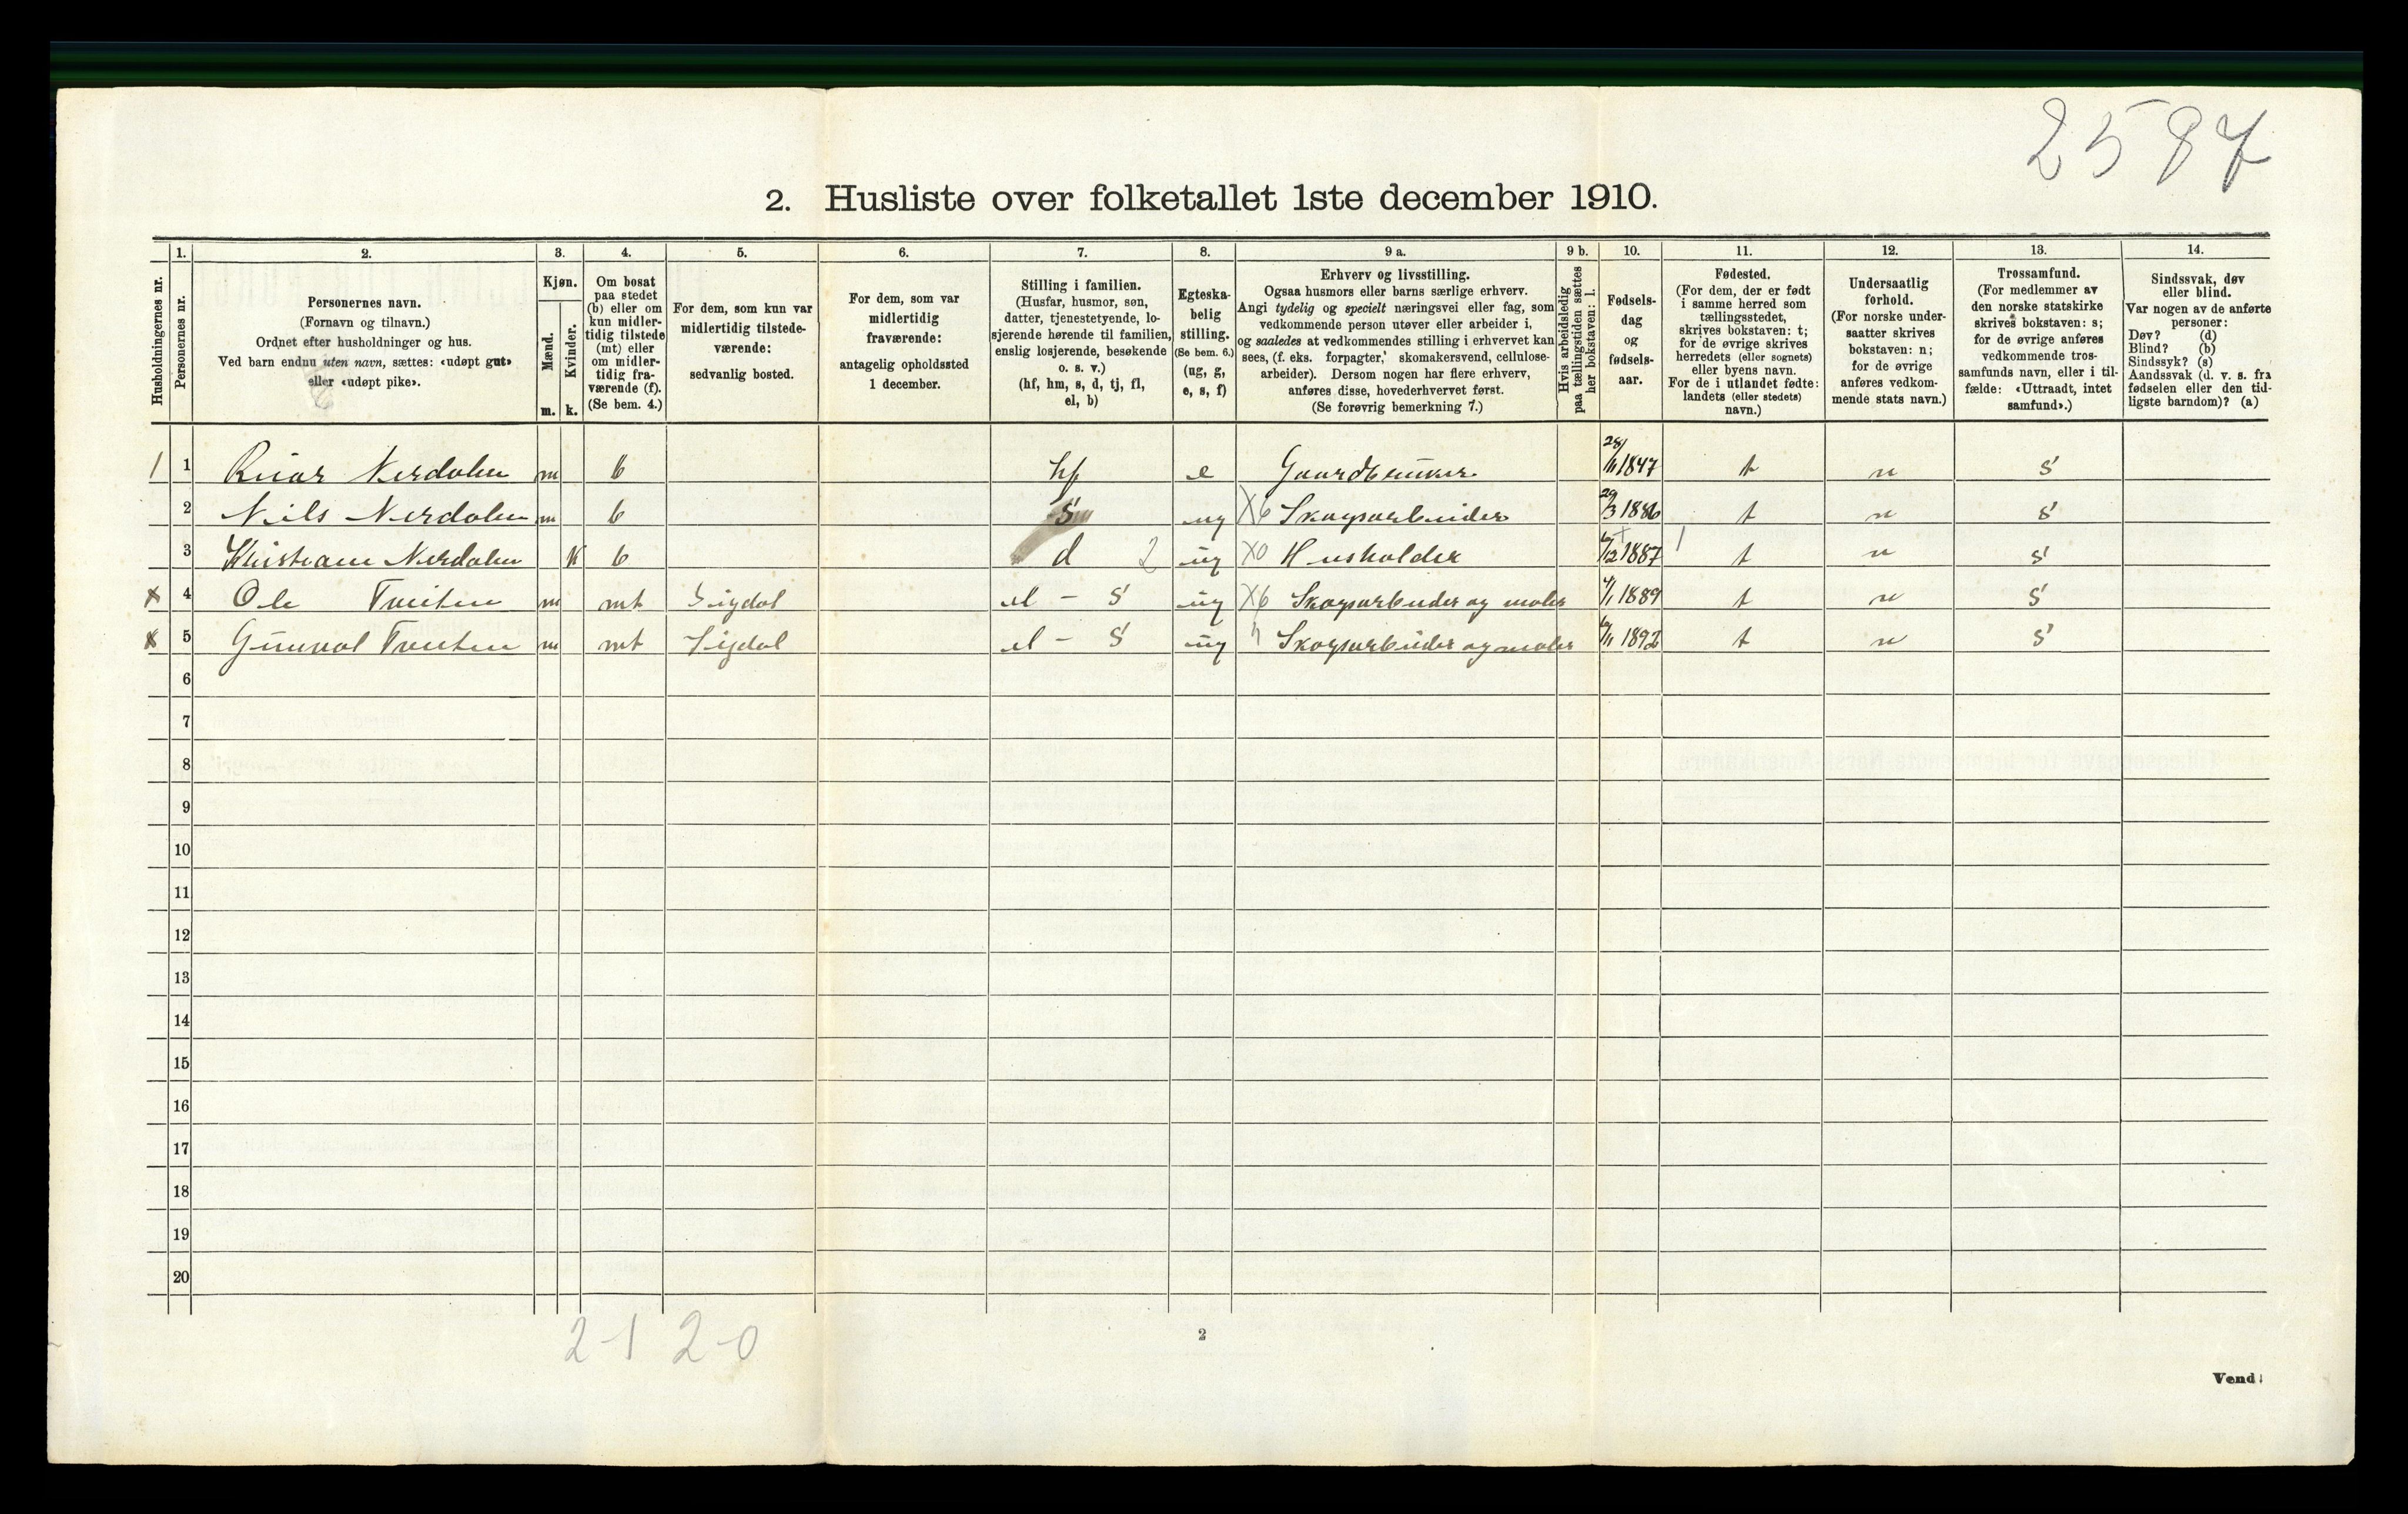 2587
2. Husliste over folketallet 1ste december 1910.
Husholdningernes nr.
1. Personernes nr.
2. Personernes navn.
(Fornavn og tilnavn.)
Ordnet efter husholdninger og hus.
Ved barn endnu uten navn, sættes: «udøpt gut»
eller «udøpt pike».
3. Kjøn.
Mænd. m.
Kvinder. k.
4. Om bosat
paa stedet
(b) eller om
kun midler-
tidig tilstede
(mt) eller
om midler-
tidig fra-
værende (f).
(Se bem. 4.)
5. For dem, som kun var
midlertidig tilstede-
værende:
sedvanlig bosted.
6. For dem, som var
midlertidig
fraværende:
antagelig opholdssted
1 december.
7. Stilling i familien.
(Husfar, husmor, søn,
datter, tjenestetyende, lo-
sjerende hørende til familien,
enslig losjerende, besøkende
o. s. v.)
(hf, hm, s, d, tj, fl,
el, b)
8. Egteska-
belig
stilling.
(Se bem. 6.)
(ug, g,
e, s, f)
9 a. Erhverv og livsstilling.
Ogsaa husmors eller barns særlige erhverv.
Angi tydelig og specielt næringsvei eller fag, som
vedkommende person utøver eller arbeider i,
og saaledes at vedkommendes stilling i erhvervet kan
sees, (f. eks. forpagter, skomakersvend, cellulose-
arbeider). Dersom nogen har flere erhverv,
anføres disse, hovederhvervet først.
(Se forøvrig bemerkning 7.)
9 b. Hvis arbeidsledig
paa tællingstiden sættes
her bokstaven: l.
10. Fødsels-
dag
og
fødsels-
aar.
11. Fødested.
(For dem, der er født
i samme herred som
tællingsstedet,
skrives bokstaven: t;
for de øvrige skrives
herredets (eller sognets)
eller byens navn.
For de i utlandet fødte:
landets (eller stedets)
navn.)
12. Undersaatlig
forhold.
(For norske under-
saatter skrives
bokstaven: n;
for de øvrige
anføres vedkom-
mende stats navn.)
13. Trossamfund.
(For medlemmer av
den norske statskirke
skrives bokstaven: s;
for de øvrige anføres
vedkommende tros-
samfunds navn, eller i til-
fælde: «Uttraadt, intet
samfund».)
14. Sindssvak, døv
eller blind.
Var nogen av de anførte
personer:
Døv? (d)
Blind? (b)
Sindssyk? (s)
Aandssvak (d. v. s. fra
fødselen eller den tid-
ligste barndom)? (a)
1 1 Nerdalen m b hf e Gaardbruker 28/11 1847 t n s
2 Niels Nerdalen m b s ug X6 Skogsarbeider 1886 t n s
3 Nerdalen k b d 2 ug X0 Husholder 1887 t n s
X 4 Ole Tveiten m mt Sigdal el - s ug X6 Skogsarbeider og maler 1889 t n s
X 5 Gunval Tveiten m mt Sigdal el - s ug " Skogsarbeider og maler 1892 t n s
6
7
8
9
10
11
12
13
14
15
16
17
18
19
20
2-1 2-0
2
Vend!